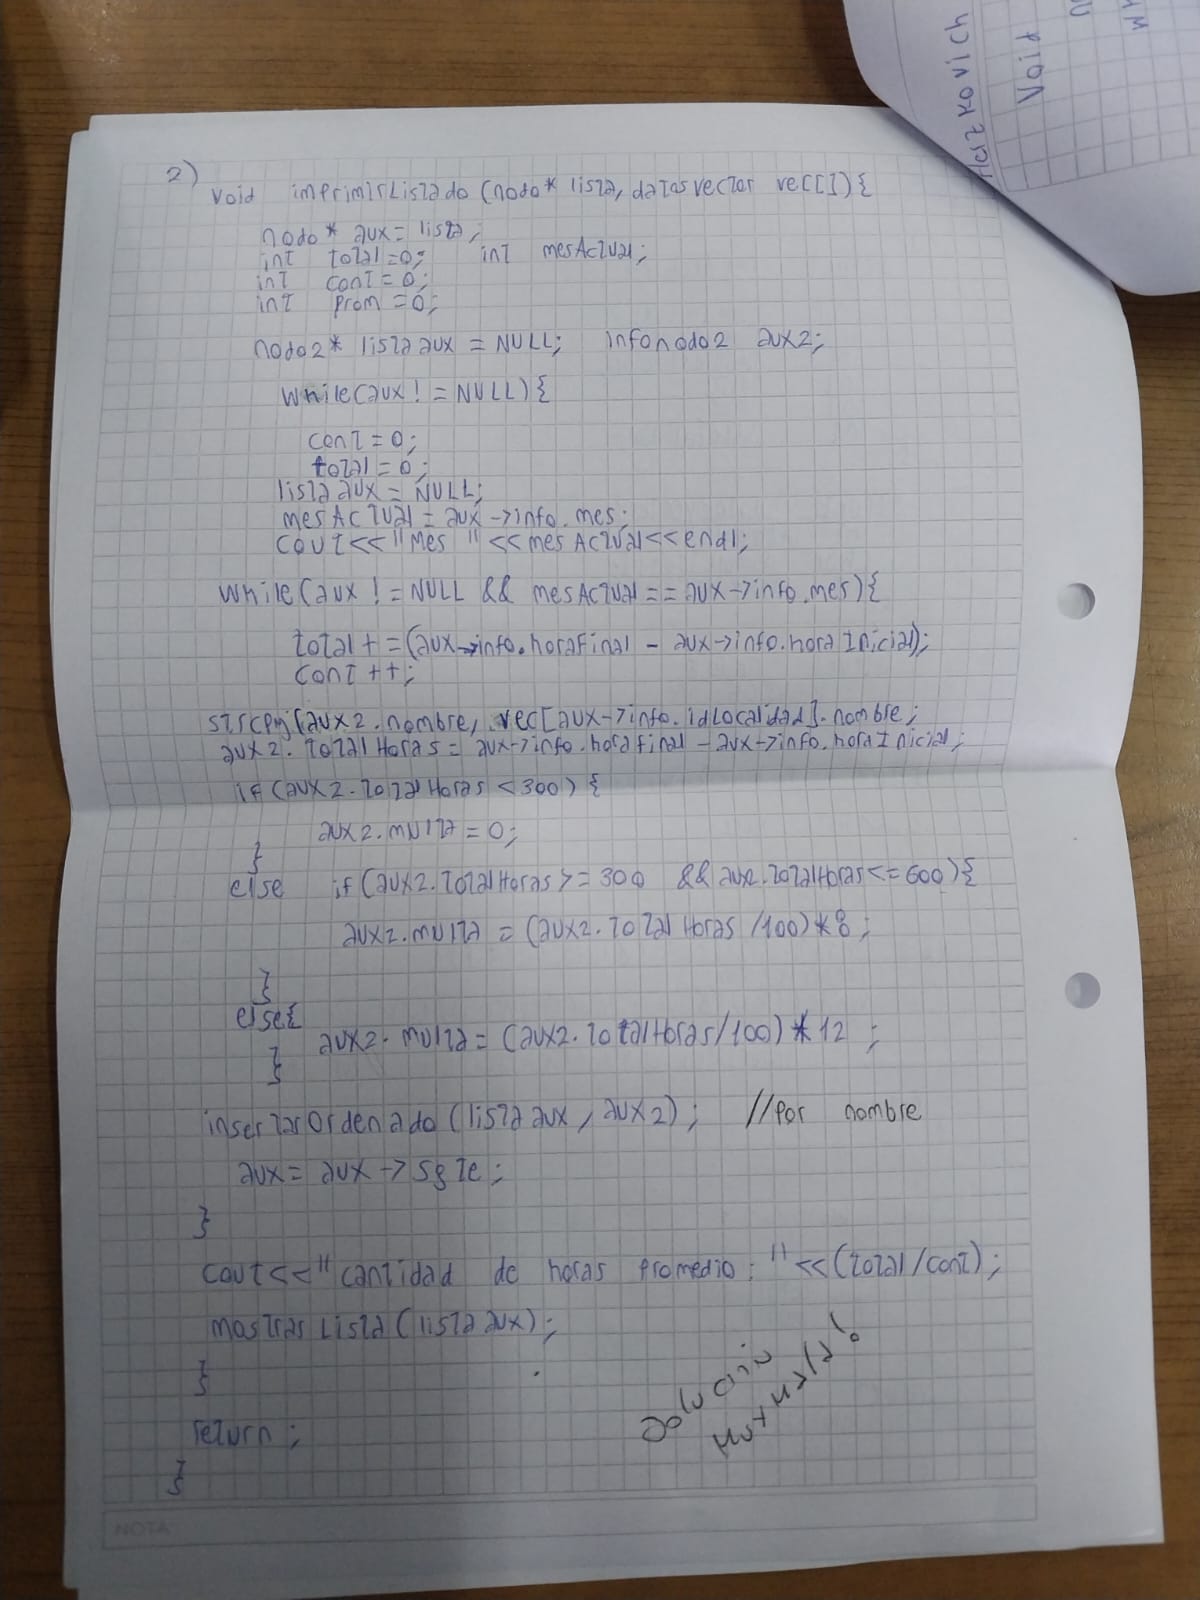 2)
void imprimirListado (nodo* lista, datosvector vec[]){
nodo* aux = lista;
int total=0; int mesActual;
int cont=0;
int prom=0;
nodo2* listaaux = NULL; infonodo2 aux2;
while(aux != NULL){
cont=0;
total=0;
listaaux = NULL;
mesActual = aux->info.mes;
cout<<"Mes "<<mesActual<<endl;
while(aux != NULL && mesActual == aux->info.mes){
total += (aux->info.horaFinal - aux->info.horaInicial);
cont++;
strcpy(aux2.nombre, vec[aux->info.idLocalidad].nombre;
aux2.totalHoras = aux->info.horafinal - aux->info.horaInicial;
if (aux2.totalHoras <300) {
aux2.multa = 0;
}
else if (aux2.totalHoras >= 300 && aux2.totalHoras<=600){
aux2.multa = (aux2.totalHoras /100)*8;
}
else{
aux2.multa = (aux2.totalHoras/100)*12;
}
insertarOrdenado (listaaux, aux2); //por nombre
aux = aux->sgte;
}
cout<<"cantidad de horas promedio: "<<(total/cont);
mostrarLista(listaaux);
}
return;
}
NOTA
Herzkovich
Void